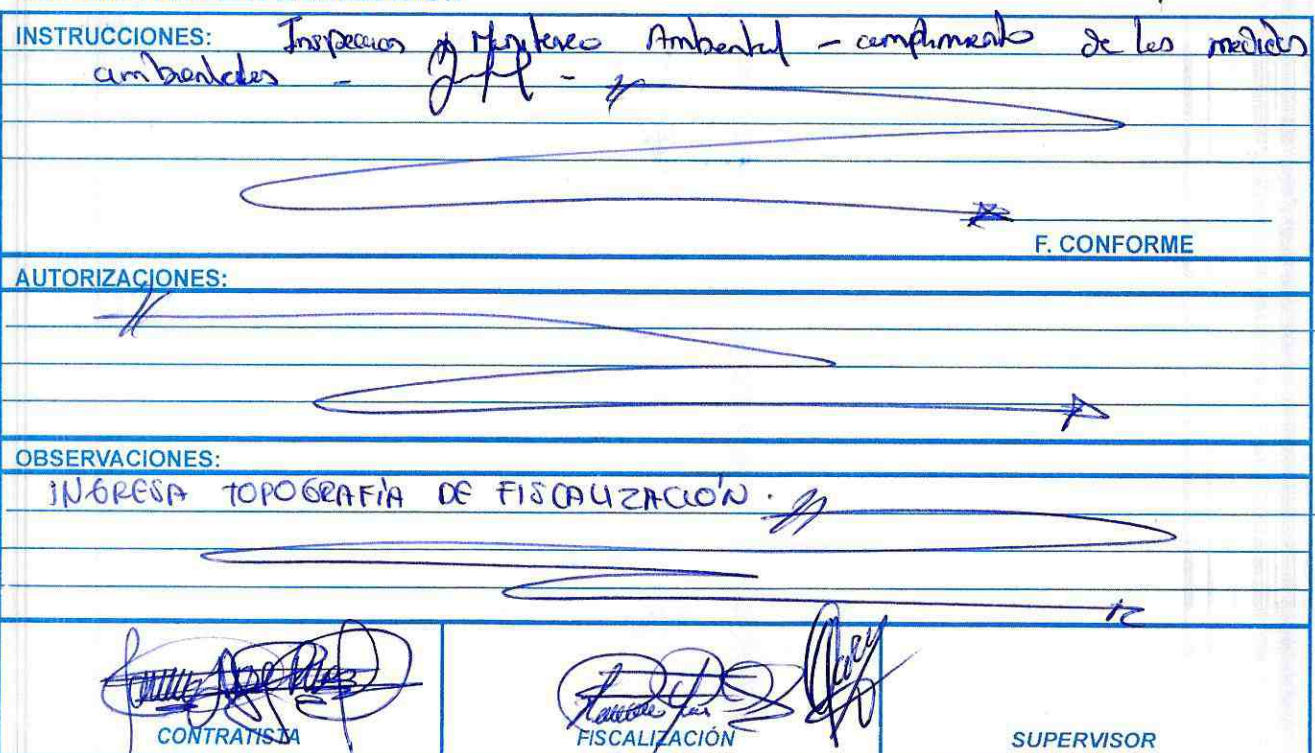 INSTRUCCIONES: Inspeccion y Monitoreo Ambiental - cumplimiento de las medidas
ambientales - -
F. CONFORME
AUTORIZACIONES:
OBSERVACIONES:
INGRESA TOPOGRAFÍA DE FISCALIZACIÓN.
CONTRATISTA FISCALIZACIÓN SUPERVISOR